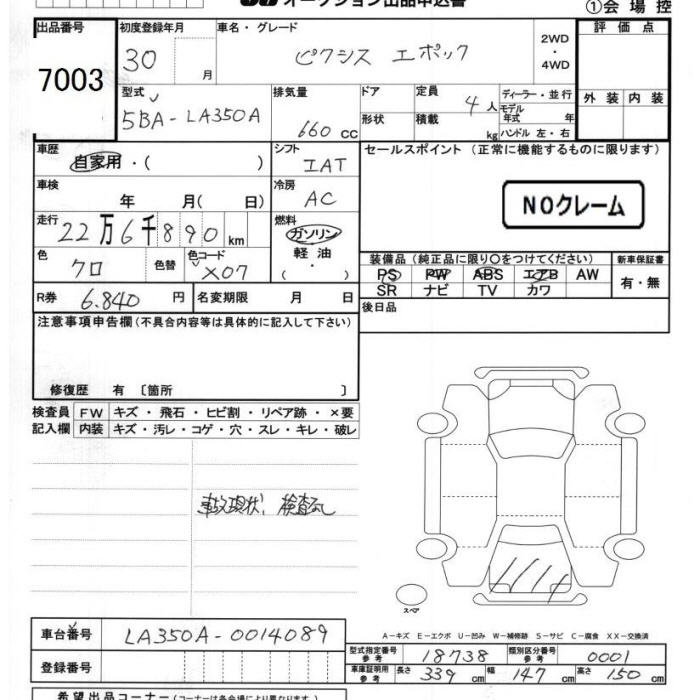 オークション出品申込書
①会 場 控
出品番号
7003
初度登録年月
30 月
車名・グレード
ピクシス エポック
2WD
・
4WD
評 価 点
外 装 内 装
型式
5BA-LA350A
排気量
660 cc
ドア
形状
定員
4 人
積載
kg
ディーラー・並 行
モデル
年式 年
ハンドル 左・右
車歴
自家用・( )
シフト
IAT
セールスポイント (正常に機能するものに限ります)
NOクレーム
車検
年 月( 日)
冷房
AC
走行
22万6千890km
燃料
ガソリン
軽 油
( ・ )
色
クロ
色替
色コード
X07
装備品 (純正品に限り〇をつけてください)
新車保証書
PS PW ABS エアB AW
SR ナビ TV カワ
有・無
R券 6.840 円
名変期限 月 日
後日品
注意事項申告欄 (不具合内容等は具体的に記入して下さい)
修復歴 有 〔箇所 〕
検査員
記入欄
FW キズ・飛石・ヒビ割・リペア跡・×要
内装 キズ・汚レ・コゲ・穴・スレ・キレ・破レ
事故現状、検査なし
スペア
A-キズ E-エクボ U-凹み W-補修跡 S-サビ C-腐食 XX-交換済
車台番号 LA350A-0014089
登録番号
型式指定番号
参考
18738
類別区分番号
参考
0001
車庫証明用
参考
長さ 339 cm 幅 147 cm 高さ 150 cm
希望出品コーナー (コーナーは各会場により異なります)